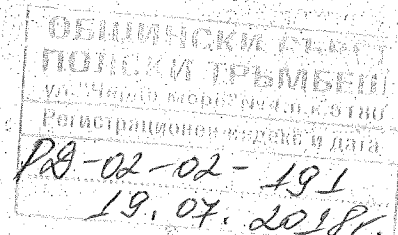 ОБЩИНСКИ СЪВЕТ
ПОЛСКИ ТРЪМБЕШ
ул. "Черно море" №4 п.к. 5180
Регистрационен индекс и дата
РД-02-02-191
19.07.2018г.